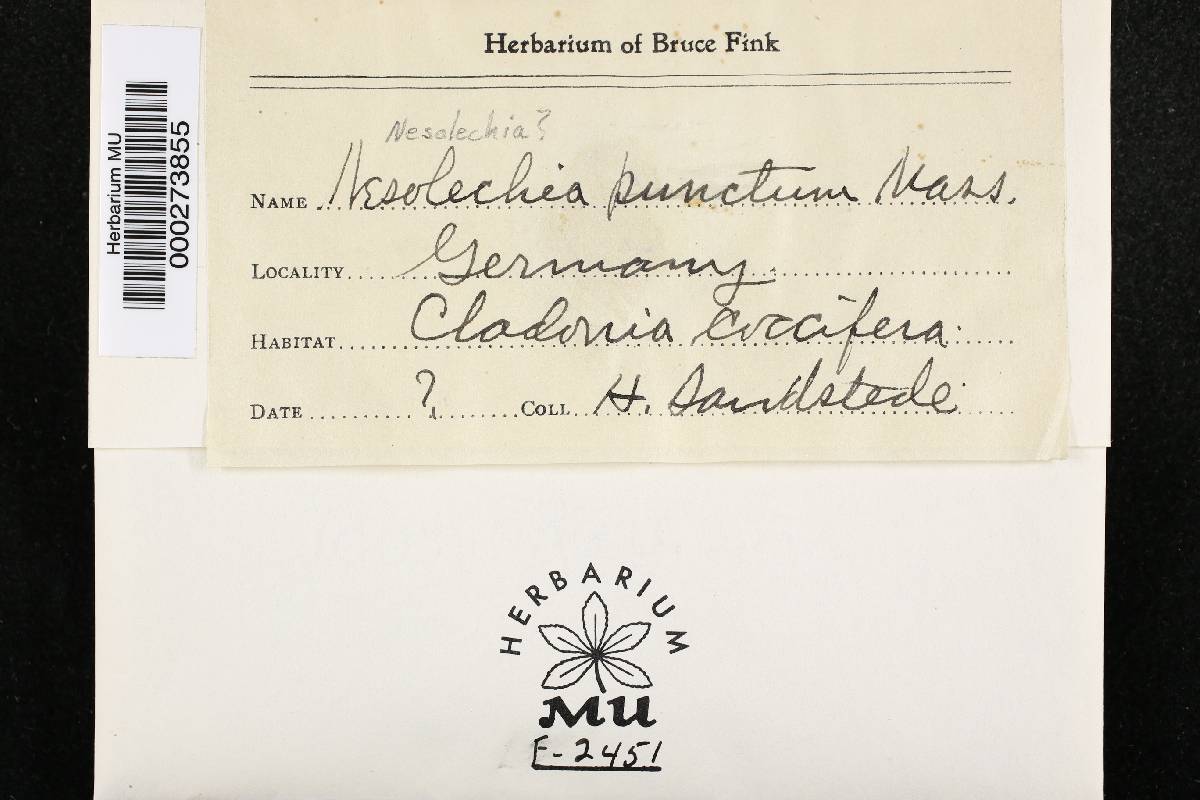 Herbarium of Bruce Fink
Nesolechia?
NAME Nesolechia punctum Mass.
LOCALITY Germany.
HABITAT Cladonia coccifera.
DATE ? COLL H. Sandstede
Herbarium MU
000273855
HERBARIUM
MU
F-2451